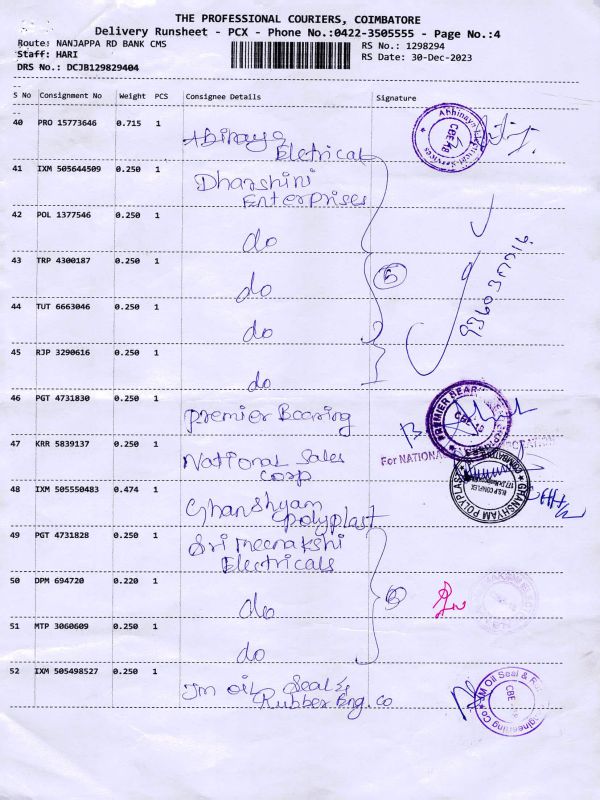 THE PROFESSIONAL COURIERS, COIMBATORE
Delivery Runsheet - PCX - Phone No.:0422-3505555 - Page No.:4
Route: NANJAPPA RD BANK CMS
RS No.: 1298294
Staff: HARI
RS Date: 30-Dec-2023
DRS No.: DCJB129829404
S No Consignment No Weight PCS Consignee Details Signature
40 PRO 15773646 0.715 1 Abinaya Eletrical
41 IXM 505644509 0.250 1 Dharshini Enterprises
42 POL 1377546 0.250 1 do
43 TRP 4300187 0.250 1 do
5
44 TUT 6663046 0.250 1 do
45 RJP 3290616 0.250 1 do
46 PGT 4731830 0.250 1 Premier Bearing
47 KRR 5839137 0.250 1 National Sales Corp
For NATIONAL
48 IXM 505550483 0.474 1 Ghanshyam Polyplast
GHANSHYAM POLYPLAST
49 PGT 4731828 0.250 1 Sri Meenakshi Electricals
50 DPM 694720 0.220 1 do
51 MTP 3060609 0.250 1 do
52 IXM 505498527 0.250 1 Jm oil Seal & Rubber Eng. Co